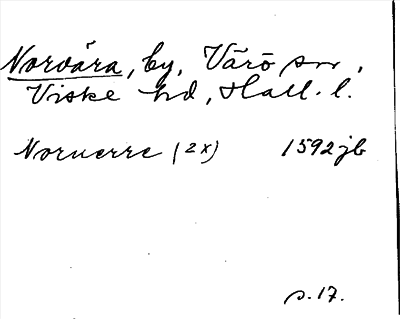 Norvära, by, Värö sn,
Viske hd, Hall. l.
Noruerre (2x) 1592 jb
s. 17.